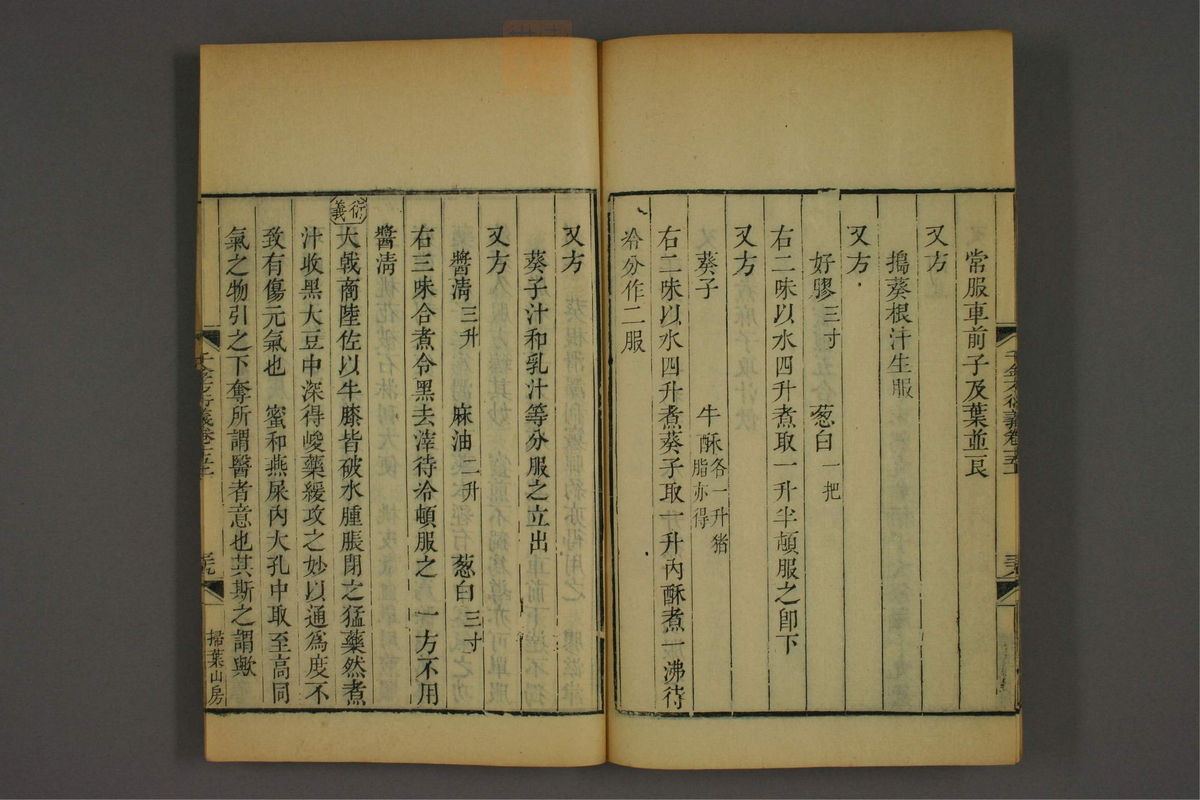 常服車前子及葉並良
又方
搗葵根汁生服
又方
好膠三寸　葱白一把
右二味以水四升煮取一升半頓服之卽下
又方
葵子　牛酥各一升猪脂亦得
右二味以水四升煮葵子取一升內酥煮一沸待
冷分作二服
又方
葵子汁和乳汁等分服之立出
又方
醬清三升　麻油二升　葱白三寸
右三味合煮令黑去滓待冷頓服之　一方不用
醬清
衍義
大戟商陸佐以牛膝皆破水腫脹閉之猛藥然煮
汁收黑大豆中深得峻藥緩攻之妙以通為度不
致有傷元氣也　蜜和燕屎內大孔中取至高同
氣之物引之下奪所謂醫者意也其斯之謂歟
千金方衍義卷十五上
掃葉山房